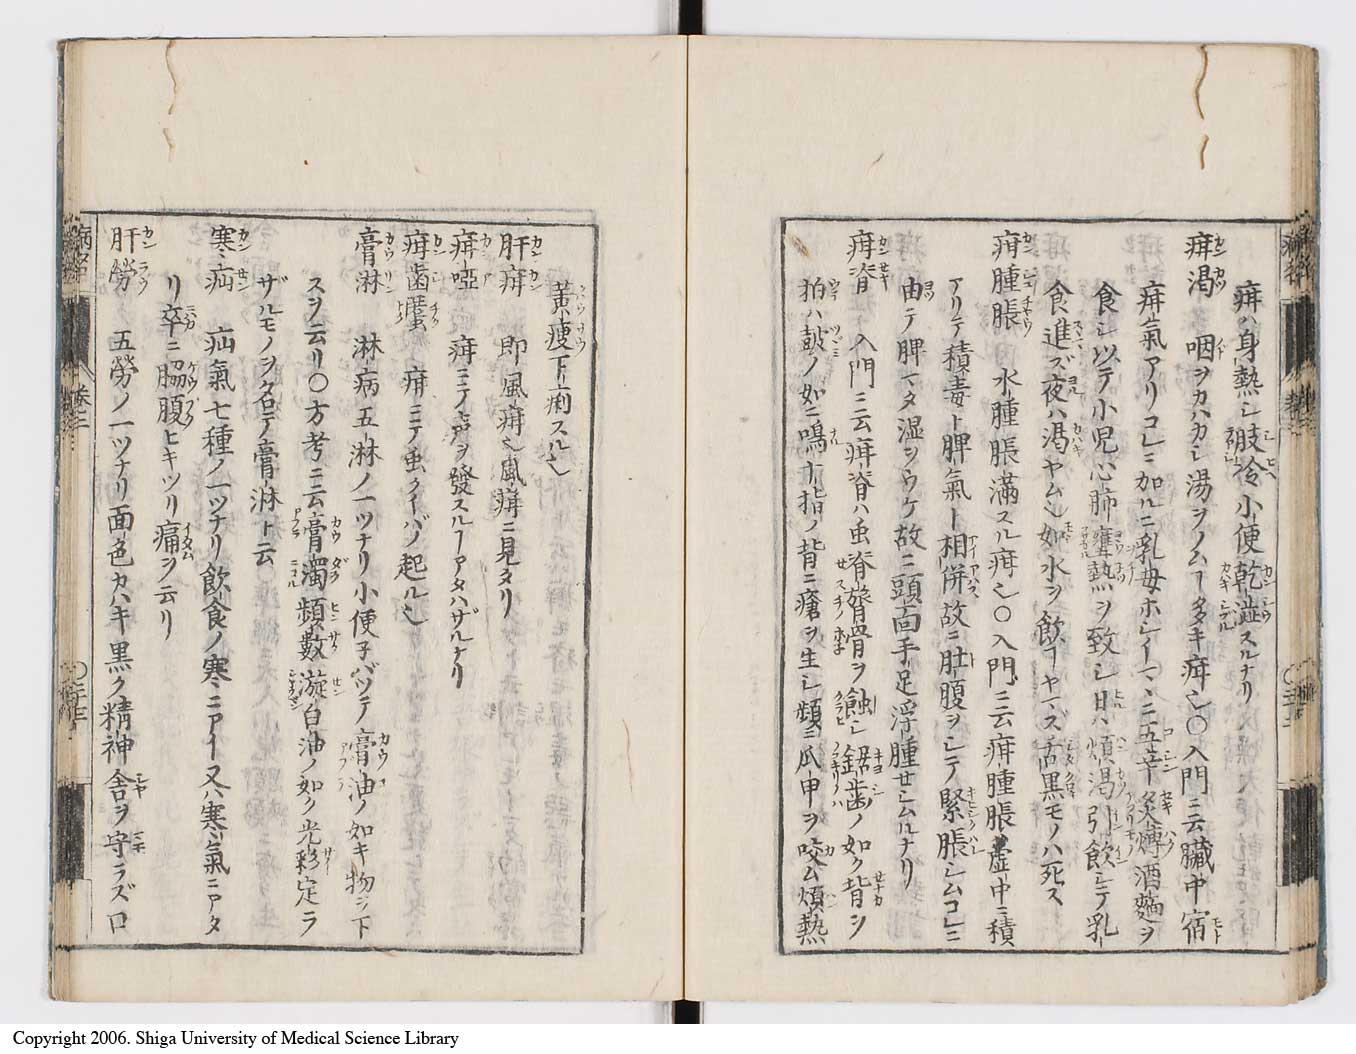 疳ハ身熱シ肢冷小便乾澁スルナリ
疳渇 咽ヲカハカシ湯ヲノムヿタキ疳也〇入門ニ云臓中宿
疳氣アリコレニ加ルニ乳母ホシイマヽニ五辛炙煿酒麺ヲ
食シツレテ小児心肺壅熱ヲ致シ日ハ煩渇引飲シテ乳
食進ズ夜ハ渇ヤム也如水ヲ飲ヿヤマズ舌黒モノハ死ス
疳腫脹 水腫脹滿スル疳也〇入門ニ云疳腫脹虚中ニ積
アリテ積毒ト脾氣ト相併故ニ肚腹ヲシテ緊脹セシムコレニ
由テ脾マタ湿ヲウケ故ニ頭面手足浮腫セシムルナリ
疳脊 入門ニ云疳脊ハ虫脊膂骨ヲ蝕シ鋸歯ノ如ク背ヲ
拍ハ鼓ノ如ニ鳴ナ十指ノ背ニ瘡ヲ生シ頻ニ爪甲ヲ咬ム煩熱
黄痩下リ痢スル也
肝疳 即風疳也風疳ニ見タリ
疳啞 疳ニテ声ヲ發スルヿアタハザルナリ
疳歯䘌 疳ニテ虫クイバノ起ル也
膏淋 淋病五淋ノ一ツナリ小便子バツテ膏油ノ如キ物ヲ下
スヲ云リ〇方考ニ云膏濁頻數漩白油ノ如ク光彩定ラ
ザルモノヲ名テ膏淋ト云
寒疝 疝氣七種ノ一ツナリ飲食ノ寒ニアイ又ハ寒氣ニアタ
リ卒ニ脇腹ヒキツリ痛ヲ云リ
肝勞 五勞ノ一ツナリ面色カハキ黒ク精神舎ヲ守ラズロ
病名
巻三
〇三十三
Copyright 2006. Shiga University of Medical Science Library